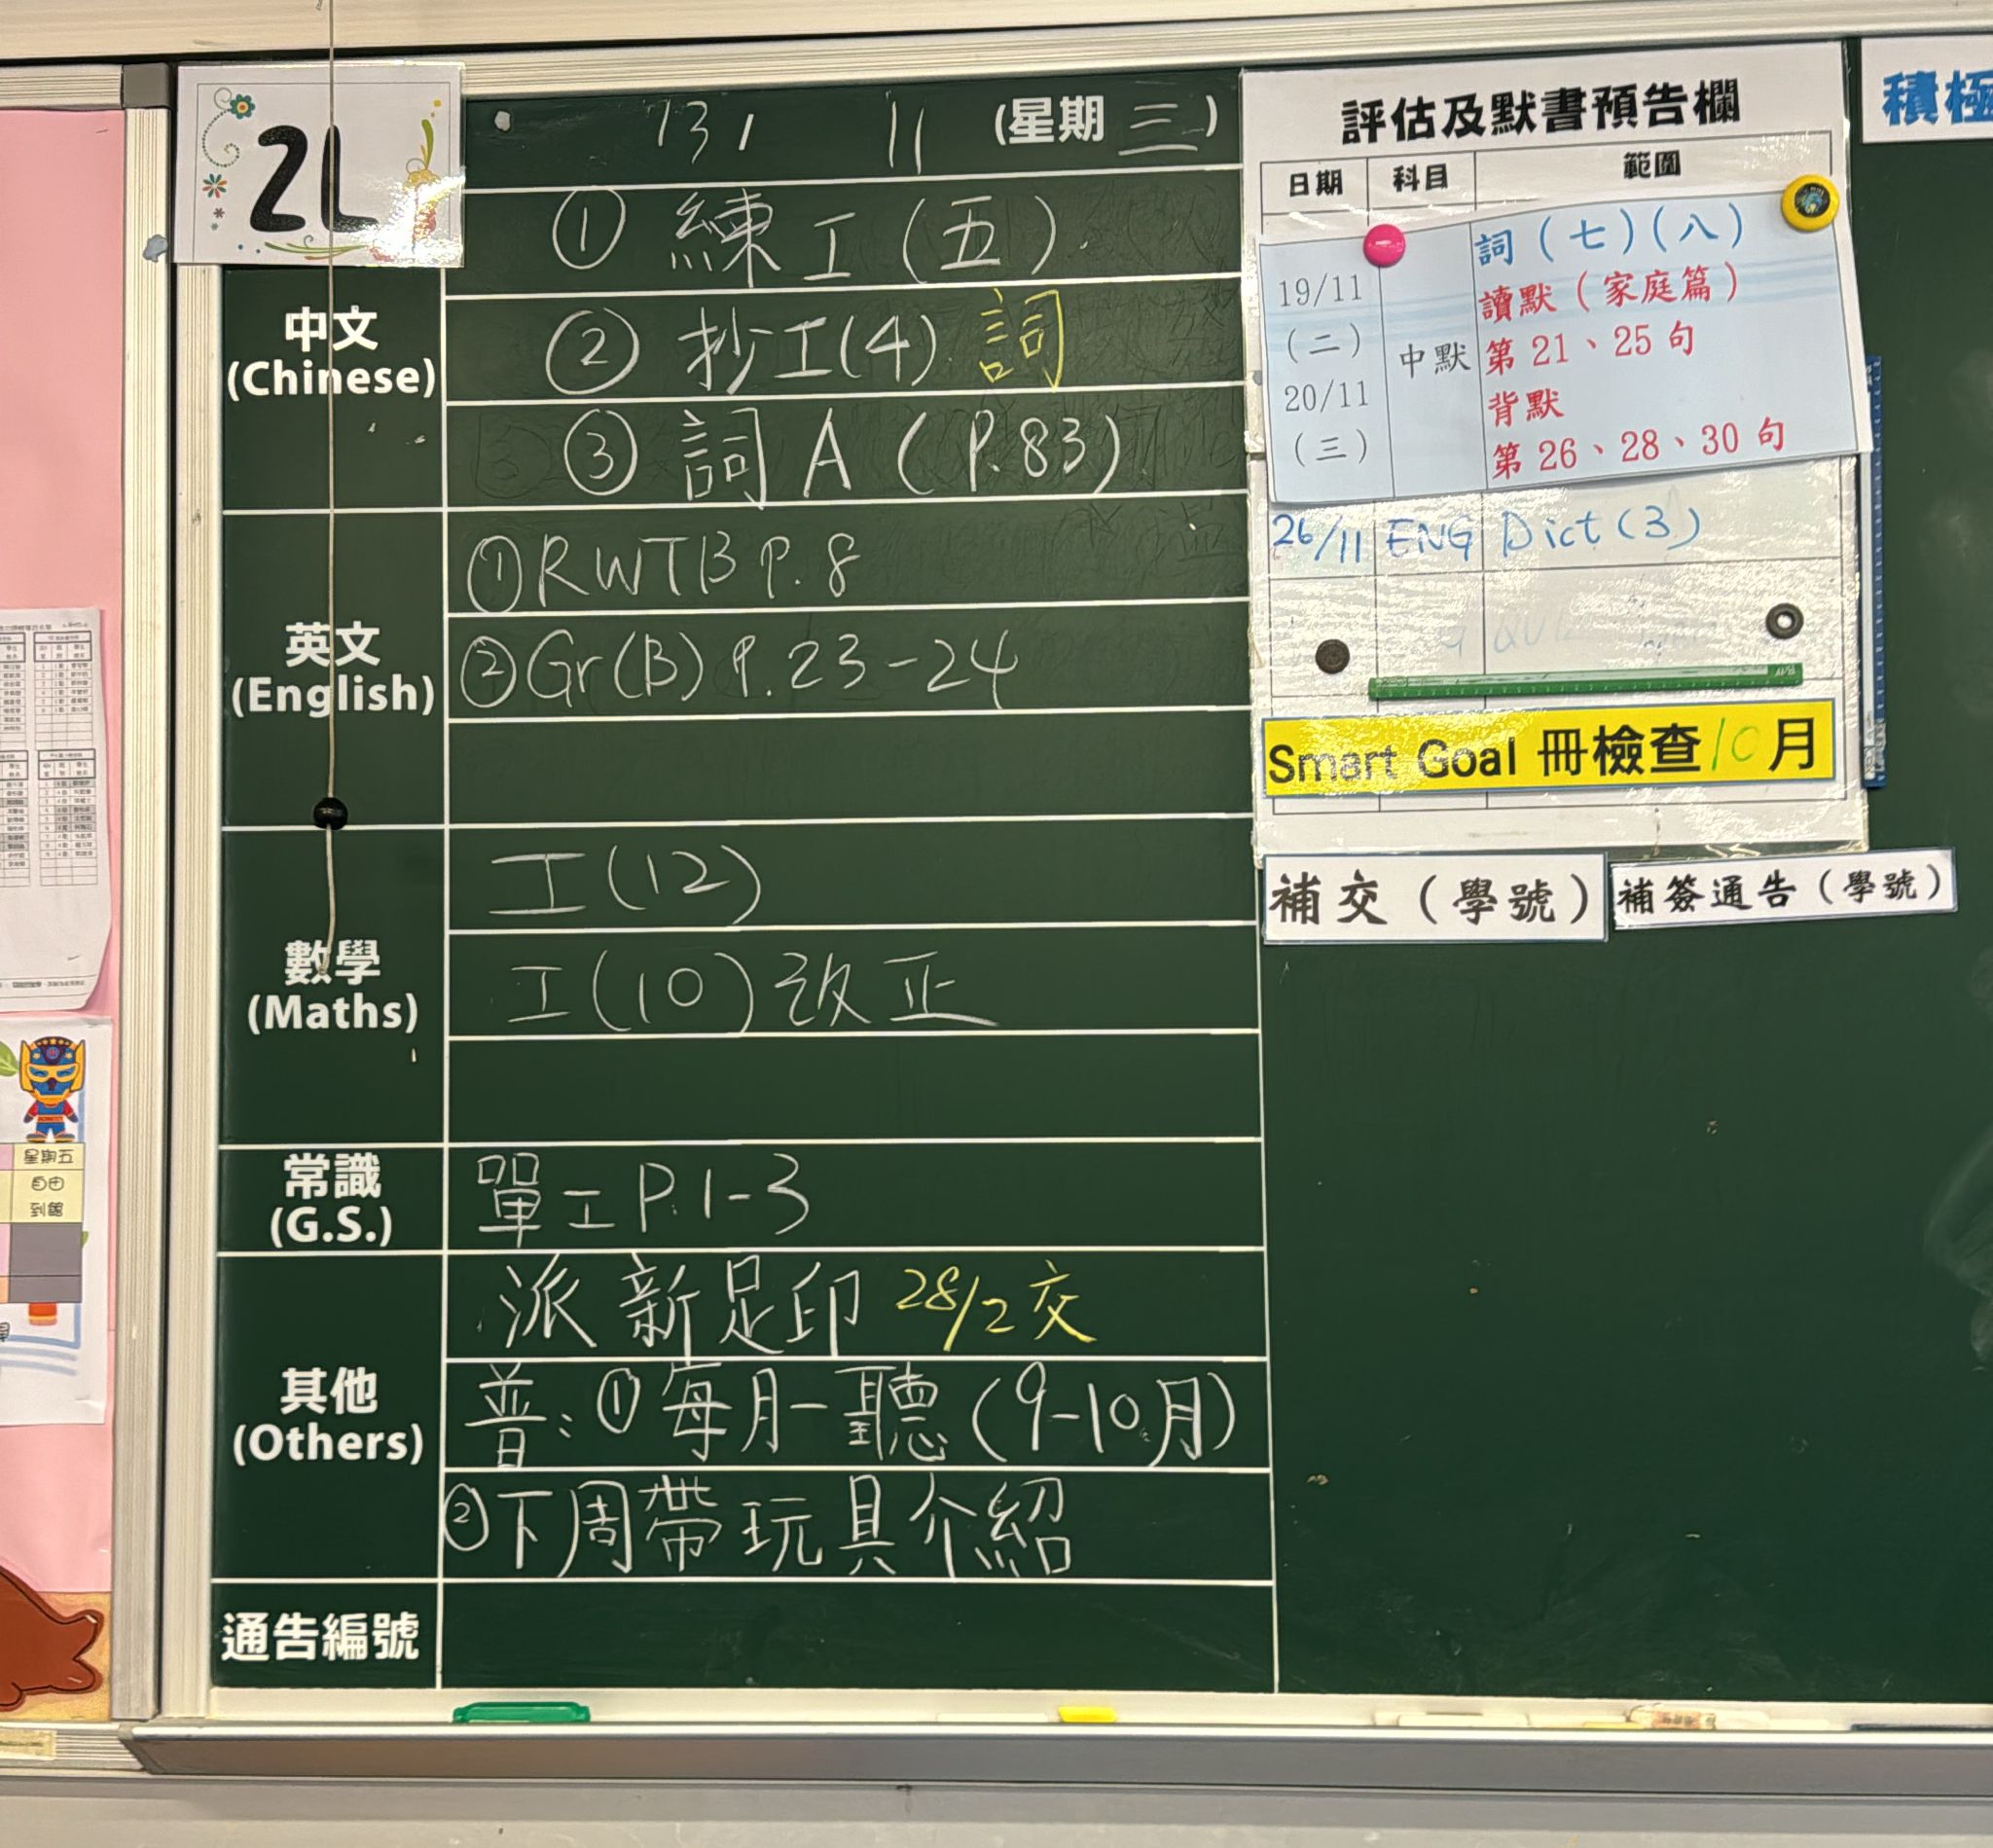 2L
13 / 11 (星期三)
中文
(Chinese)
① 練工(五)
② 抄工(4) 詞
③ 詞 A (P.83)
英文
(English)
① RWTB P.8
② Gr(B) P.23-24
數學
(Maths)
工(12)
工(10)改正
常識
(G.S.)
單工 P.1-3
其他
(Others)
派新足印 28/2交
普:①每月一聽(9-10月)
②下周帶玩具介紹
通告編號
評估及默書預告欄
日期 科目 範圍
19/11
(二)
20/11
(三)
中默
詞(七)(八)
讀默(家庭篇)
第 21、25 句
背默
第 26、28、30 句
26/11 ENG Dict(3)
Smart Goal 冊檢查10月
補交(學號)
補簽通告(學號)
積極
星期五
自由
到館